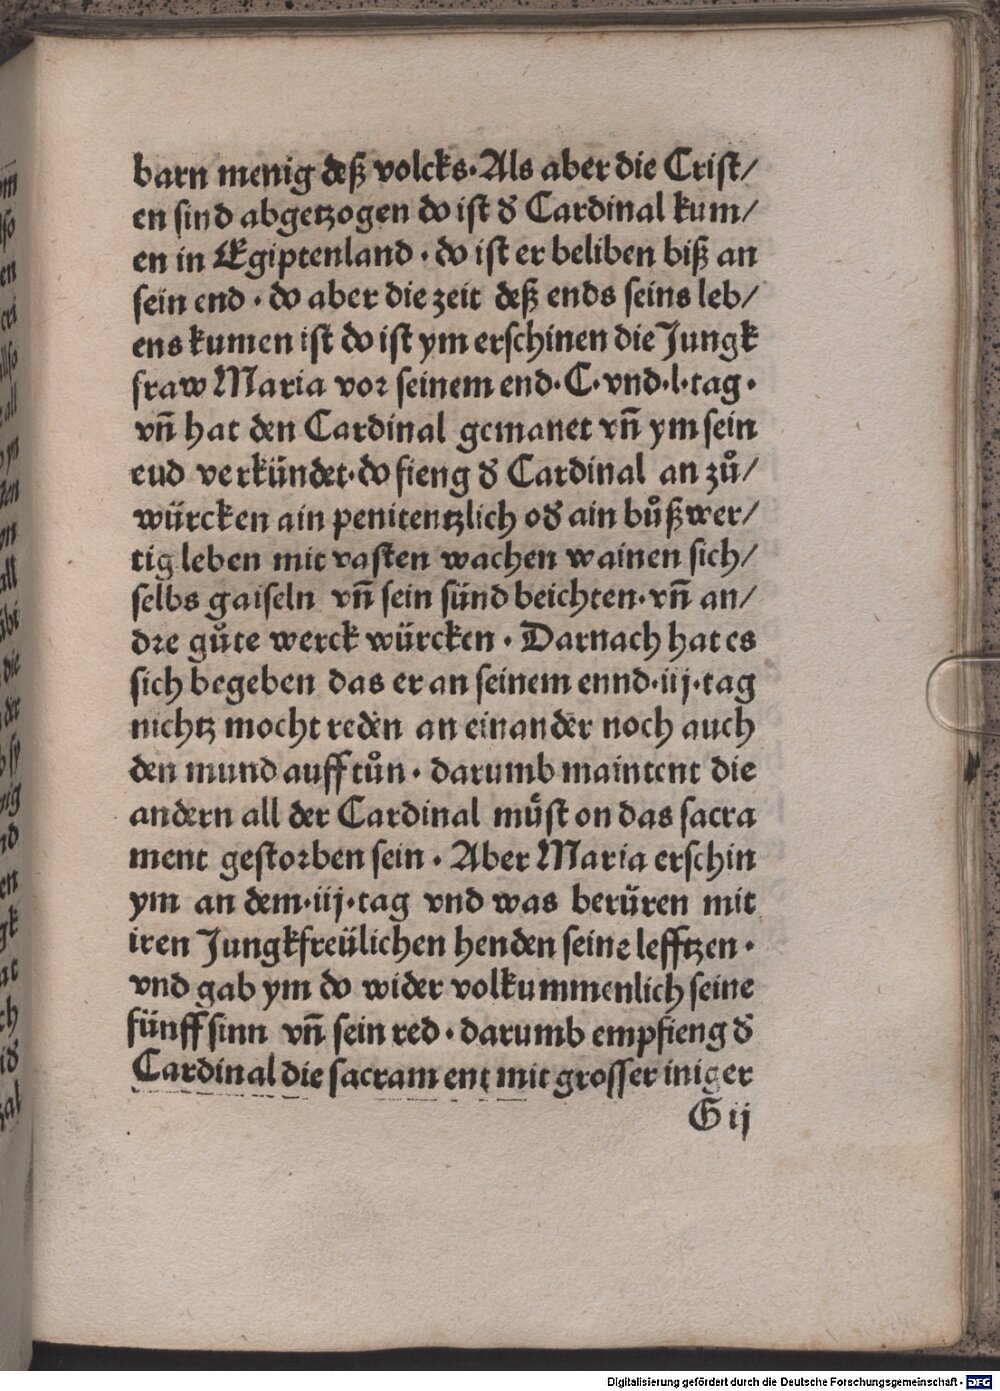 barn menig deß volcks · Als aber die Crist/
en sind abgetzogen do ist đ Cardinal kum/
en in Egiptenland · do ist er beliben biß an
sein end · do aber die zeit deß ends seins leb/
ens kumen ist do ist ym erschinen die Jungk
fraw Maria vor seinem end · C · vnd · l · tag ·
vñ hat den Cardinal gemanet vñ ym sein
eud verkündet · do fieng đ Cardinal an zů/
würcken ain penitentzlich ođ ain bůßwer/
tig leben mit vasten wachen wainen sich/
selbs gaiseln vñ sein sünd beichten · vñ an/
dre gůte werck würcken · Darnach hat es
sich begeben das er an seinem ennd · iij · tag
nichtz mocht reden an einander noch auch
den mund auff tůn · darumb maintent die
andern all der Cardinal můst on das sacra
ment gestorben sein · Aber Maria erschin
ym an dem · iij · tag vnd was berüren mit
iren Jungkfreülichen henden seine lefftzen ·
vnd gab ym do wider volkummenlich seine
fünff sinn vñ sein red · darumb empfieng đ
Cardinal die sacrament mit grosser iniger
G ij
Digitalisierung gefördert durch die Deutsche Forschungsgemeinschaft - DFG